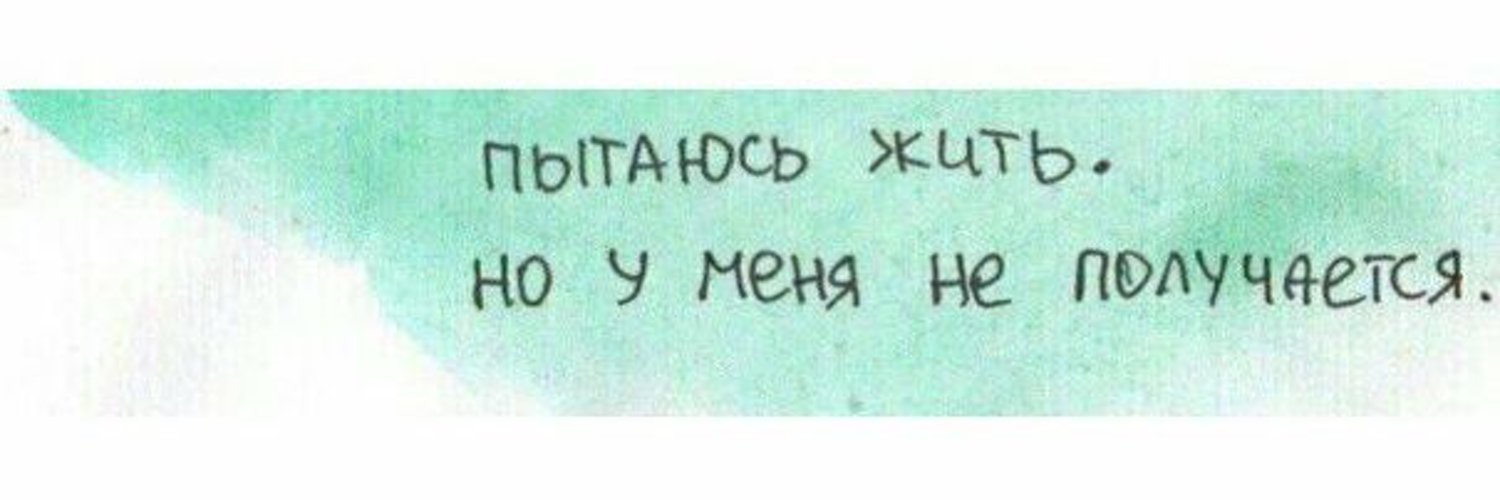 пытаюсь жить.
но у меня не получается.